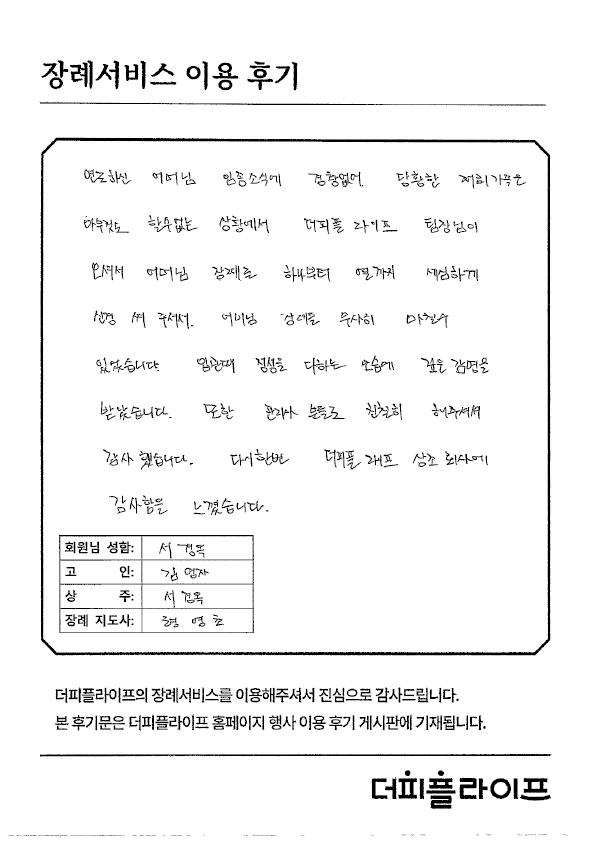 장례서비스 이용 후기
연로하신 어머님 임종소식에 경황없어 당황한 저희가족은
아무것도 할수없는 상황에서 더피플 라이프 팀장님이
오셔서 어머님 장례를 하나부터 열까지 세심하게
신경 써 주셔서. 어머님 장례를 무사히 마칠수
있었습니다. 입관때 정성을 다하는 모습에 깊은 감명을
받았습니다. 또한 관리사 분들도 친절히 해주셔서
감사 했습니다. 다시한번 더피플 라이프 상조 회사에
감사함을 느꼈습니다.
회원님 성함: 서경옥
고 인: 김
상 주: 서경옥
장례 지도사:
더피플라이프의 장례서비스를 이용해주셔서 진심으로 감사드립니다.
본 후기문은 더피플라이프 홈페이지 행사 이용 후기 게시판에 기재됩니다.
더피플라이프